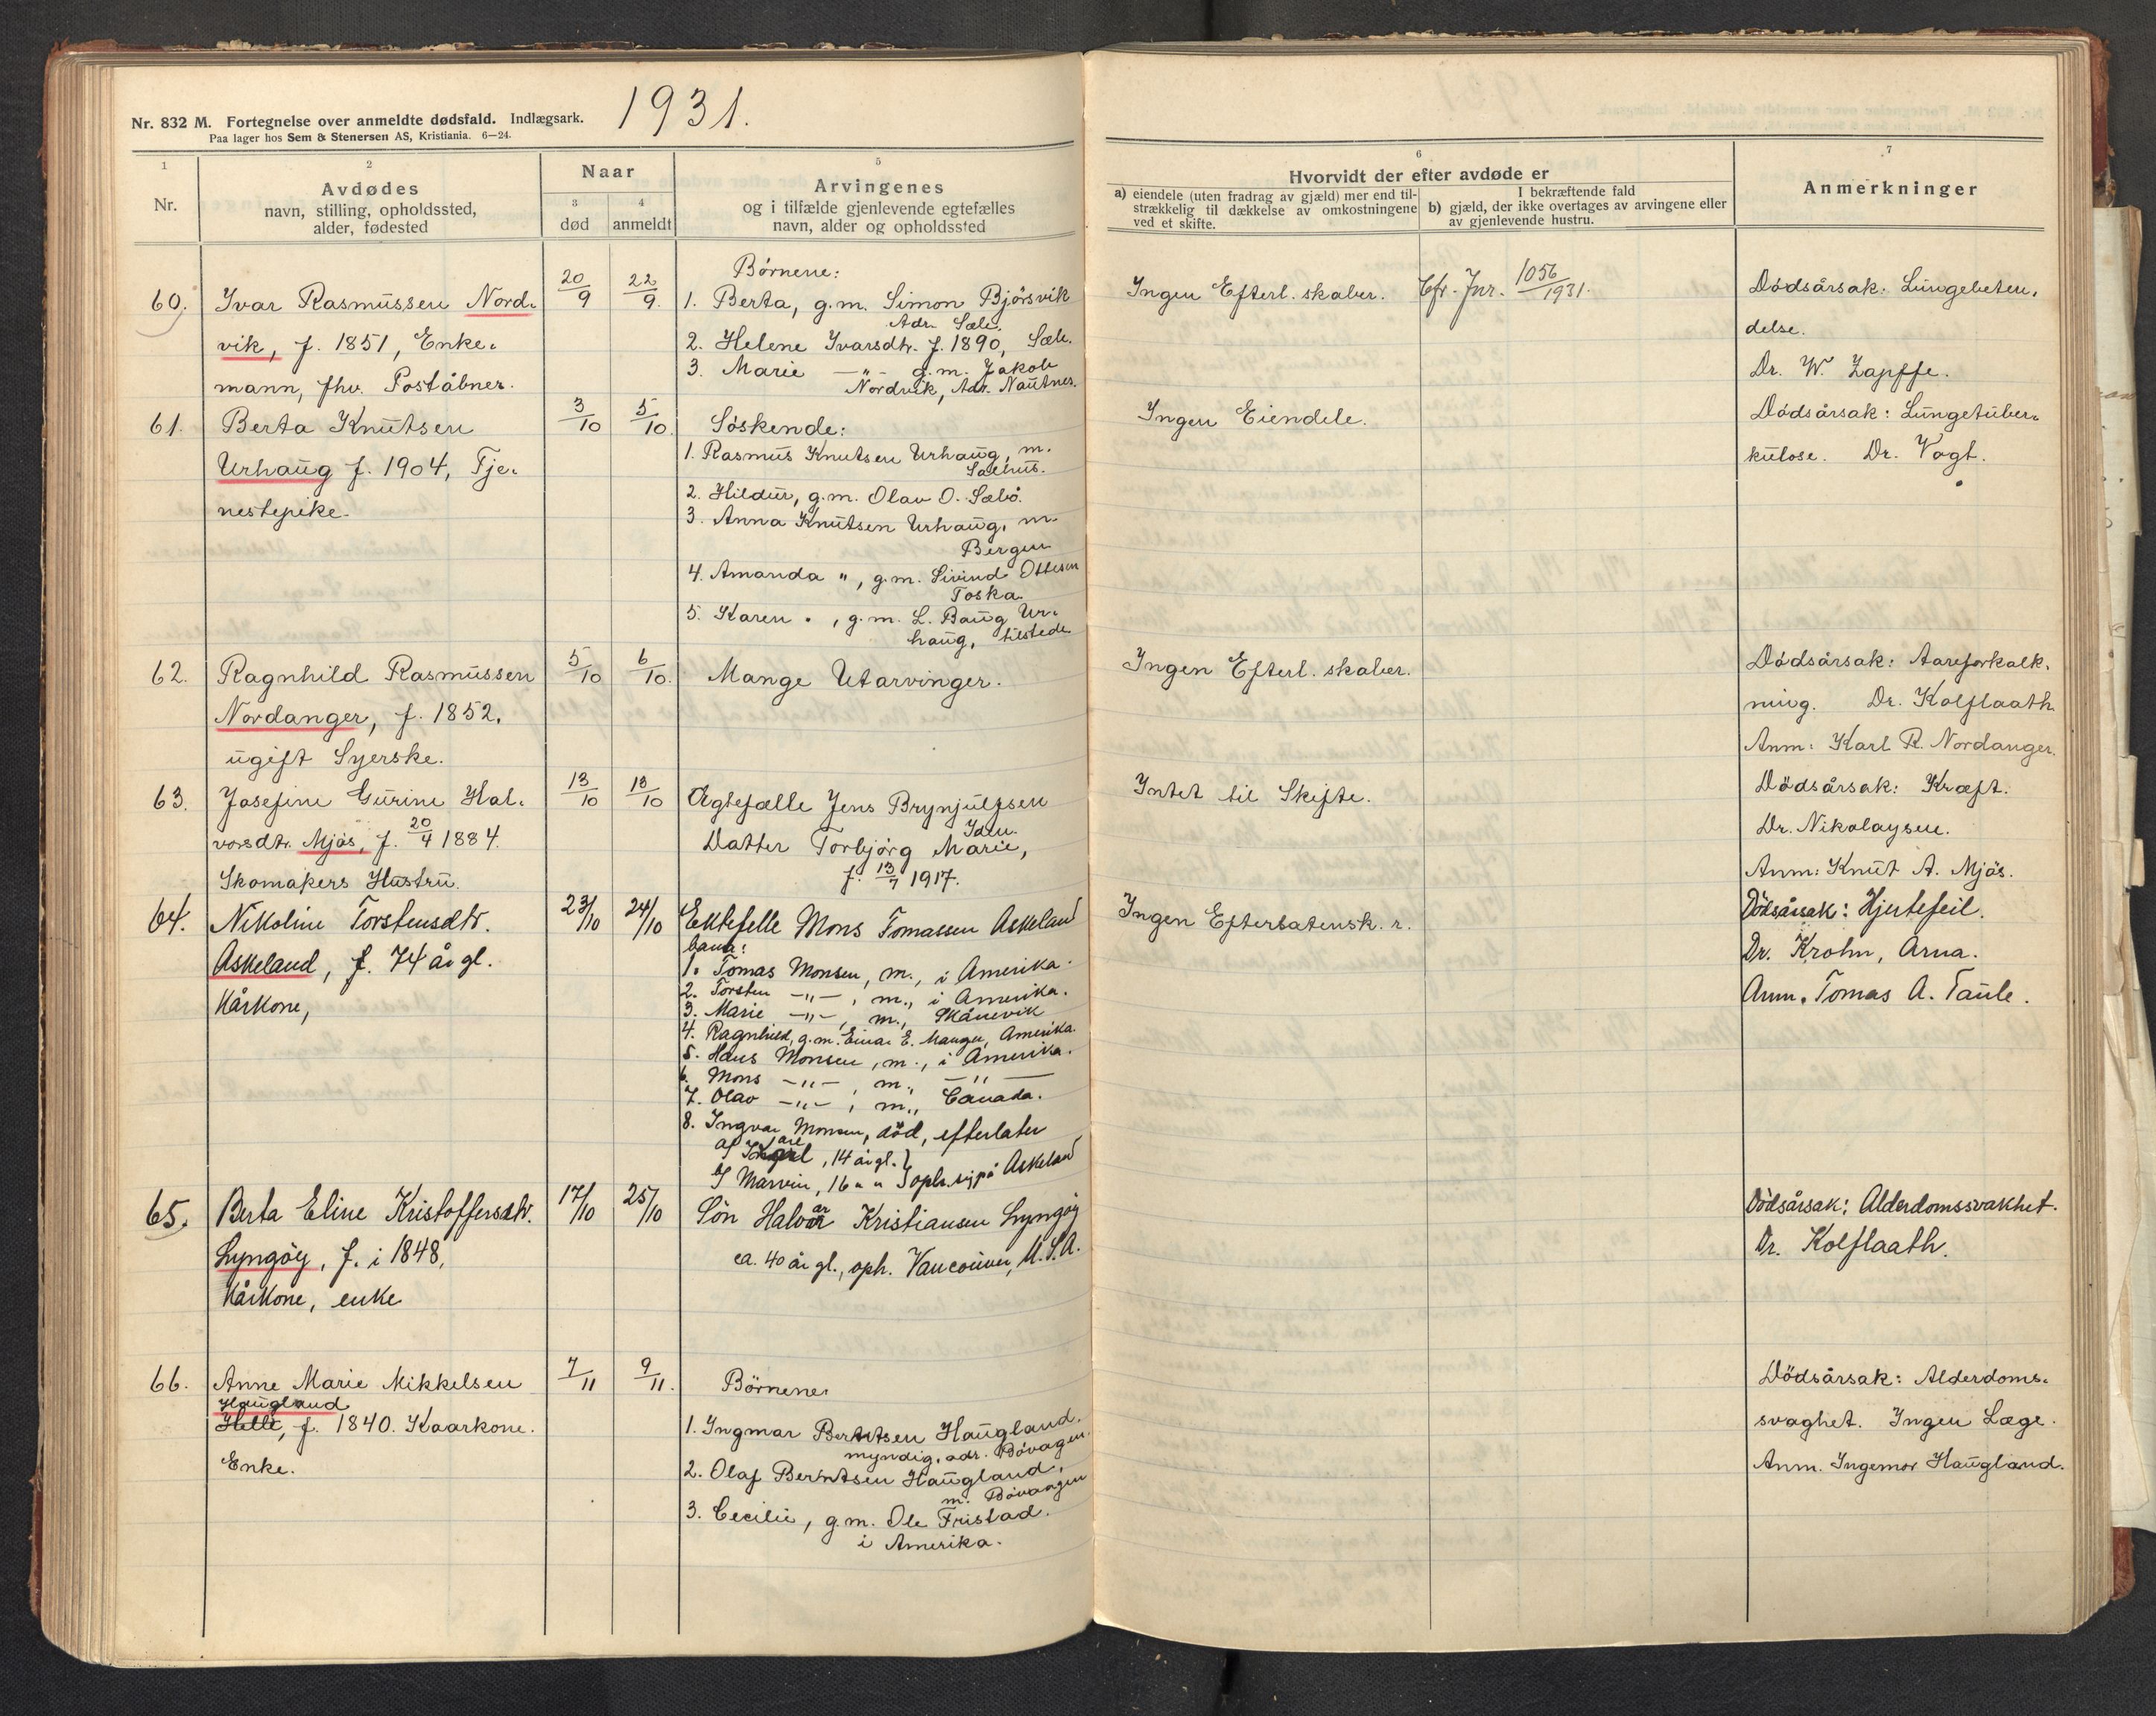 Nr. 832 M. Fortegnelse over anmeldte dødsfald. Indlægsark.
Paa lager hos Sem & Stenersen AS, Kristiania. 6—24.
1931.
1
Nr.
2
Avdødes
navn, stilling, opholdssted,
alder, fødested
Naar
3
død
4
anmeldt
5
Arvingenes
og i tilfælde gjenlevende egtefælles
navn, alder og opholdssted
6
Hvorvidt der efter avdøde er
a) eiendele (uten fradrag av gjæld) mer end til-
strækkelig til dækkelse av omkostningene
ved et skifte.
I bekræftende fald
b) gjæld, der ikke overtages av arvingene eller
av gjenlevende hustru.
7
Anmerkninger
60.
Ivar Rasmussen Nord-
vik, f. 1851, Enke-
mann, fhv. Poståbner.
20/9
22/9.
Børnene:
1. Berta, g.m. Simon Bjørsvik
Adr. Sæle.
2. Helene Ivarsdtr. f. 1890, Sæle.
3. Marie —"— g.m. Jakob
Nordvik, Adr. Nautnes.
Ingen Efterl. skaber.
Cfr. Jnr. 1056/1931.
Dødsårsak: Lungebeten-
delse.
Dr. W. Zapffe.
61.
Berta Knutsen
Urhaug f. 1904, Tje-
nestepike.
3/10
5/10.
Søskende:
1. Rasmus Knutsen Urhaug, m.
Salhus.
2. Hildur, g.m. Olav O. Sæbø.
3. Anna Knutsen Urhaug, m.
Bergen
4. Amanda ", g.m. Sivind Ottesen
Toska.
5. Karen ", g.m. L. Baug Ur-
haug, tilstede.
Ingen Eiendele.
Dødsårsak: Lungetuber-
kulose. Dr. Vogt.
62.
Ragnhild Rasmussen
Nordanger, f. 1852,
ugift Syerske.
5/10
6/10.
Mange Utarvinger.
Ingen Efterl. skaber.
Dødsårsak: Aareforkalk-
ning. Dr. Kolflaath.
Anm: Karl R. Nordanger.
63.
Josefine Gurine Hal-
vorsdtr. Mjøs, f. 20/4 1884.
Skomakers Hustru.
13/10
13/10
Ægtefælle Jens Brynjulfsen
Datter Torbjørg Marie,
f. 13/7 1917.
Intet til Skifte.
Dødsårsak: Kræft.
Dr. Nikolaysen.
Anm: Knut A. Mjøs.
64.
Nikoline Torstensdtr.
Askeland, f. 74 år gl.
Kårkone,
23/10
24/10
Ektefelle Mons Tomassen Askeland
barn:
1. Tomas Monsen, m., i Amerika.
2. Torsten —"—, m., i Amerika.
3. Marie —"—, m., Skånevik
4. Ragnhild, g.m. Einar E. Manger, Amerika.
5. Hans Monsen, m., i Amerika.
6. Mons —"—, m., —"—
7. Olav —"—, m., Canada.
8. Ingvar Monsen, död, efterlater
a) , 14 år gl. }
b) Marvin, 16 " " } oph. sig på Askeland
Ingen Efterlatensk. r.
Dödsårsak: Hjertefeil.
Dr. Krohn, Arna.
Anm. Tomas A. Taule.
65.
Berta Eline Kristoffersdtr.
Lyngöy, f. i 1848,
Kårkone, enke
17/10
25/10
Sön Halvar Kristiansen Lyngöy
ca. 40 år gl., oph. Vancouver, U.S.A.
Dödsårsak: Alderdomssvakhet.
Dr. Kolflaath.
66.
Anne Marie Mikkelsen
Haugland
Helle, f. 1840. Kaarkone.
Enke.
7/11
9/11.
Börnene:
1. Ingmar Berntsen Haugland,
myndig, adr. Bövagen.
2. Olaf Berntsen Haugland,
m. Bövaagen
3. Cecilie, g.m. Ole Fristad.
i Amerika.
Dödsårsak: Alderdoms-
svaghet. Ingen Læge.
Anm. Ingemor Haugland.